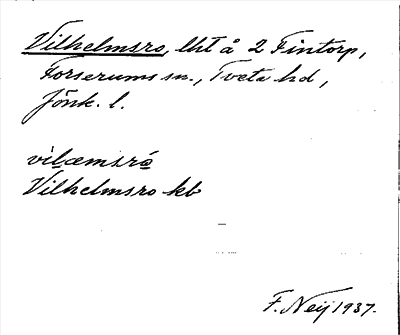 Vilhelmsro, lht å 2 Fintorp,
Forserums sn., Tveta hd,
Jönk. l.
vilæmsró
Vilhelmsro kb
F. Neij 1937.